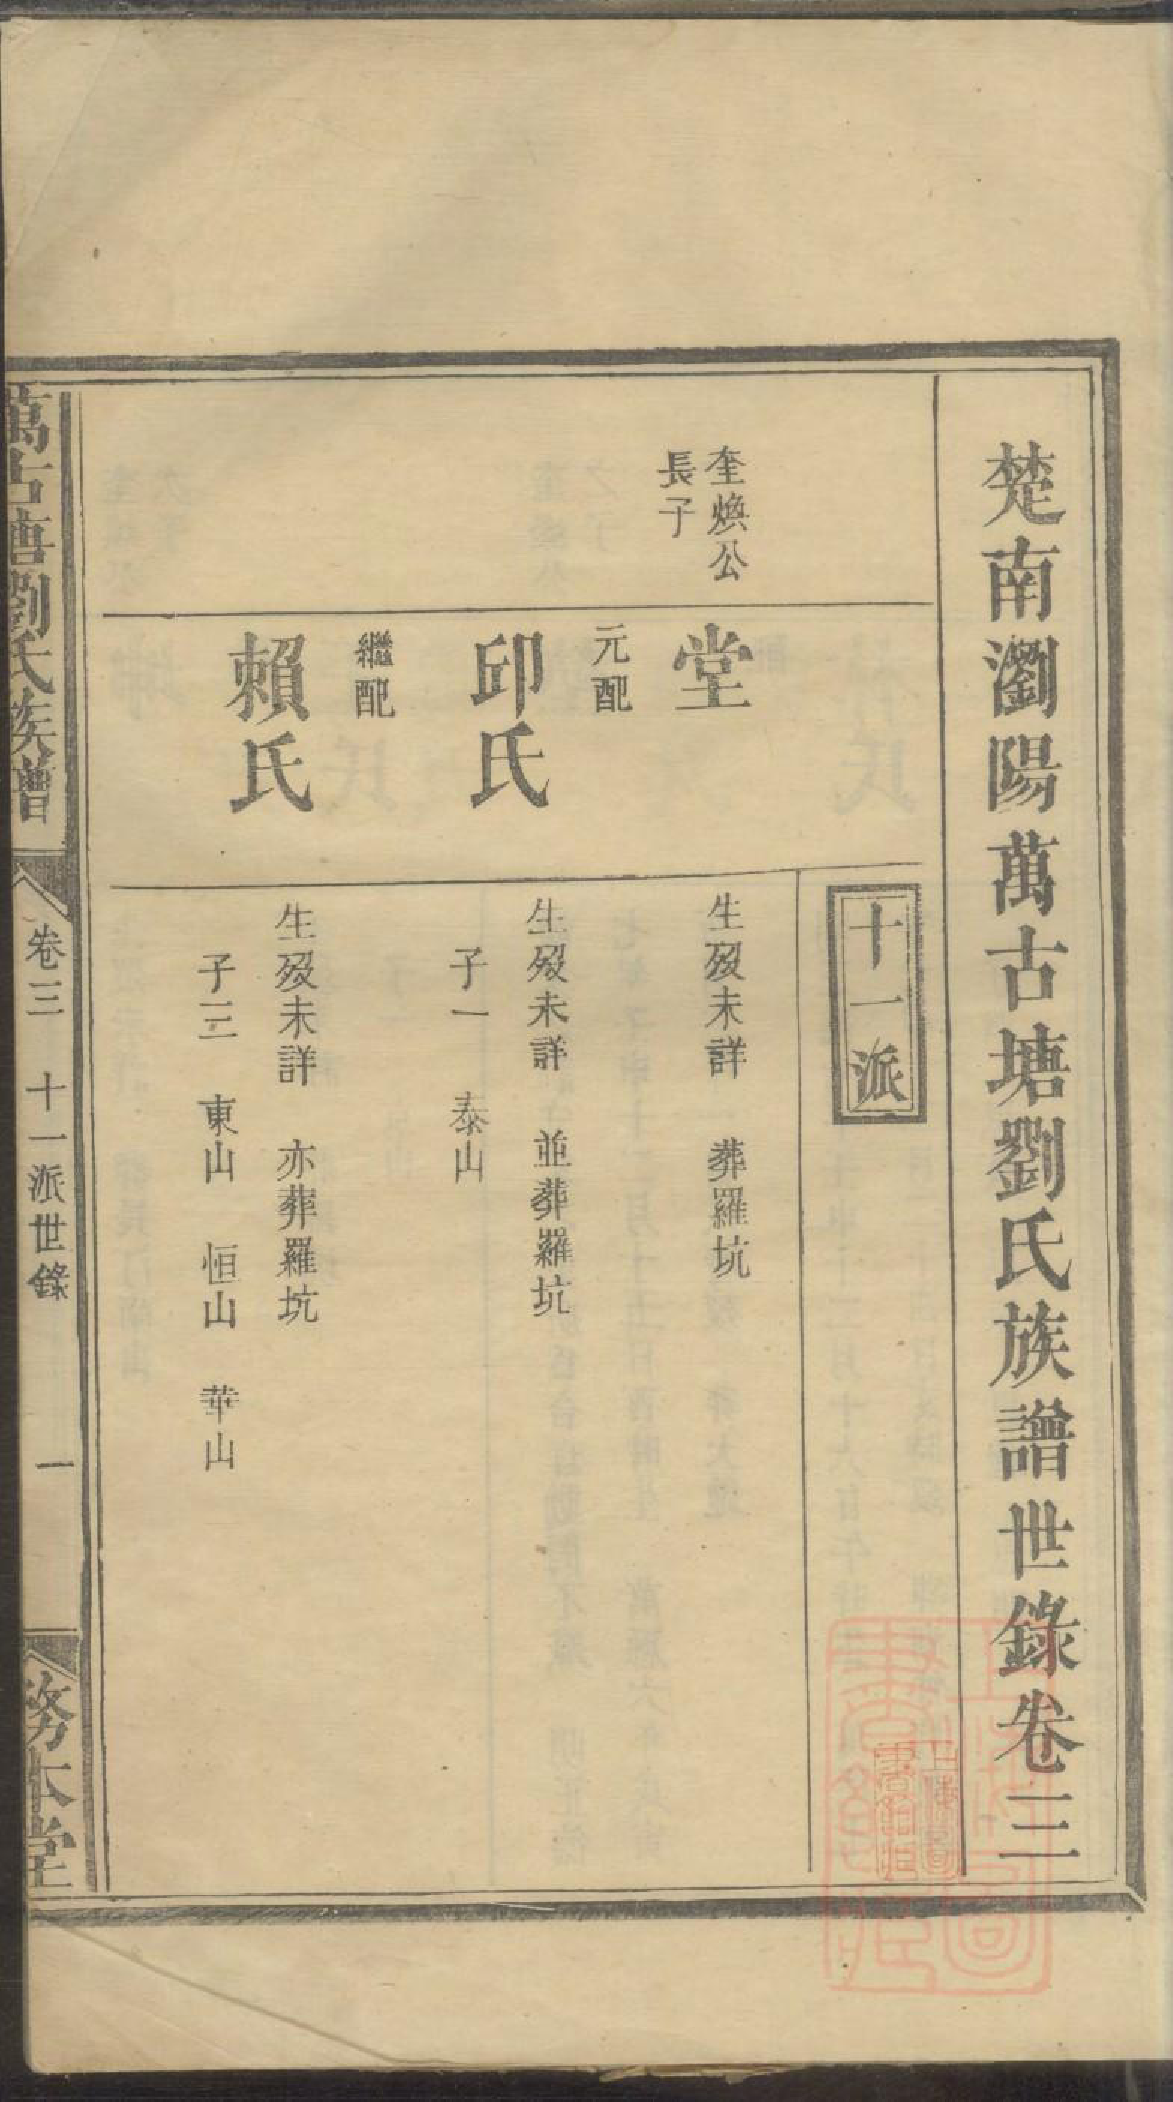 楚南瀏陽萬古塘劉氏族譜世錄卷三
十一派
奎煥公
長子
堂
生歿未詳 葬羅坑
元配
邱氏
生歿未詳 並葬羅坑
子一 泰山
繼配
賴氏
生歿未詳 亦葬羅坑
子三 東山 恒山 華山
萬古塘劉氏族譜 卷三 十一派世錄 一 務本堂